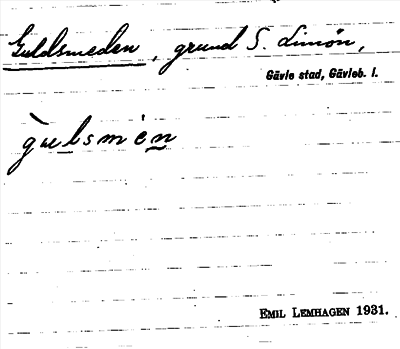 Guldsmeden, grund S. Limön,
Gävle stad, Gävleb. l.
gu̲lsmèn̲
EMIL LEMHAGEN 1931.